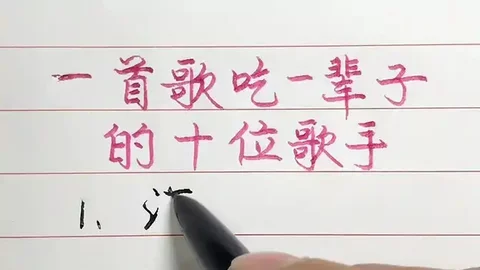 一首歌吃一辈子
的十位歌手
1、